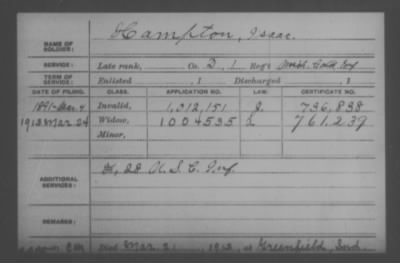 Hampton, Isaac.
NAME OF SOLDIER:
SERVICE: Late rank, Co. D, 1 Reg't Inf.
TERM OF SERVICE: Enlisted , 1 Discharged , 1
DATE OF FILING. CLASS. APPLICATION NO. LAW. CERTIFICATE NO.
1891-Mar. 4 Invalid, 1,012,151 736,838
1912 Mar 24 Widow, 1004535 761,239
Minor,
ADDITIONAL SERVICES: 28 U.S.C. Inf.
REMARKS:
died Mar. 21 1912, at Greenfield, Ind.